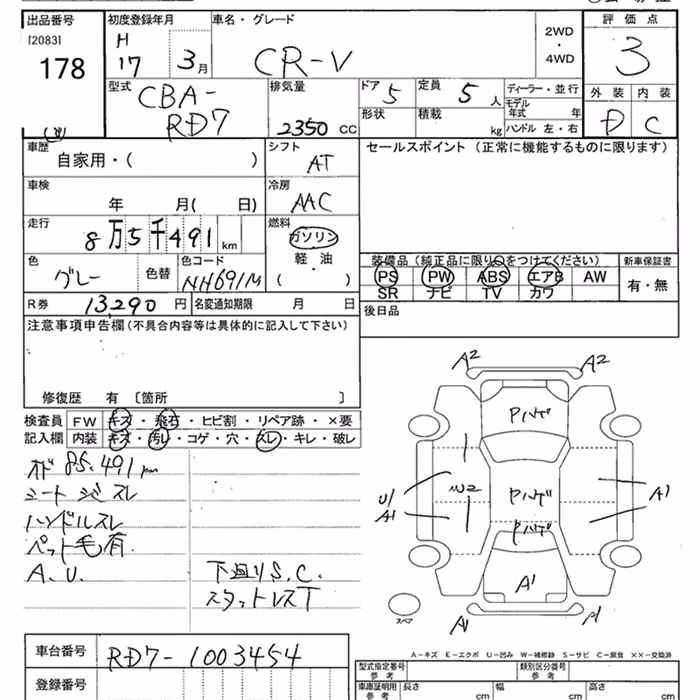 出品番号
[2083]
178
初度登録年月
H
17 3月
車名・グレード
CR-V
2WD
・
4WD
評価点
3
型式
CBA-
RD7
排気量
2350 CC
ドア 5
形状
定員 5 人
積載 kg
ディーラー・並行
モデル
年式 年
ハンドル 左・右
外装 内装
D C
車歴
自家用・( )
シフト
AT
セールスポイント (正常に機能するものに限ります)
車検
年 月( 日)
冷房
AAC
走行
8万5千491 km
燃料
ガソリン
軽・油
( )
色
グレー
色替
色コード
NH691M
装備品 (純正品に限り○をつけてください)
新車保証書
PS PW ABS エアB AW
有・無
SR ナビ TV カワ
R券 13,290 円
名変通知期限 月 日
後日品
注意事項申告欄 (不具合内容等は具体的に記入して下さい)
修復歴 有 〔箇所 〕
検査員
記入欄
FW キズ・飛石・ヒビ割・リペア跡・×要
内装 キズ・汚レ・コゲ・穴・スレ・キレ・破レ
オド 85.491 km
シート シミ スレ
ハンドルスレ
ペット毛有
A.U.
下廻りS.C.
スタットレスT
A2 A2
Pハゲ
U1
A1
W2
Pハゲ
A1
Pハゲ
A1
A1
スペア
A-キズ E-エクボ U-凹み W-補修跡 S-サビ C-腐食 ××-交換済
車台番号
RD7-1003454
登録番号
型式指定番号
参考
類別区分番号
参考
車庫証明用
参考
長さ cm
幅 cm
高さ cm